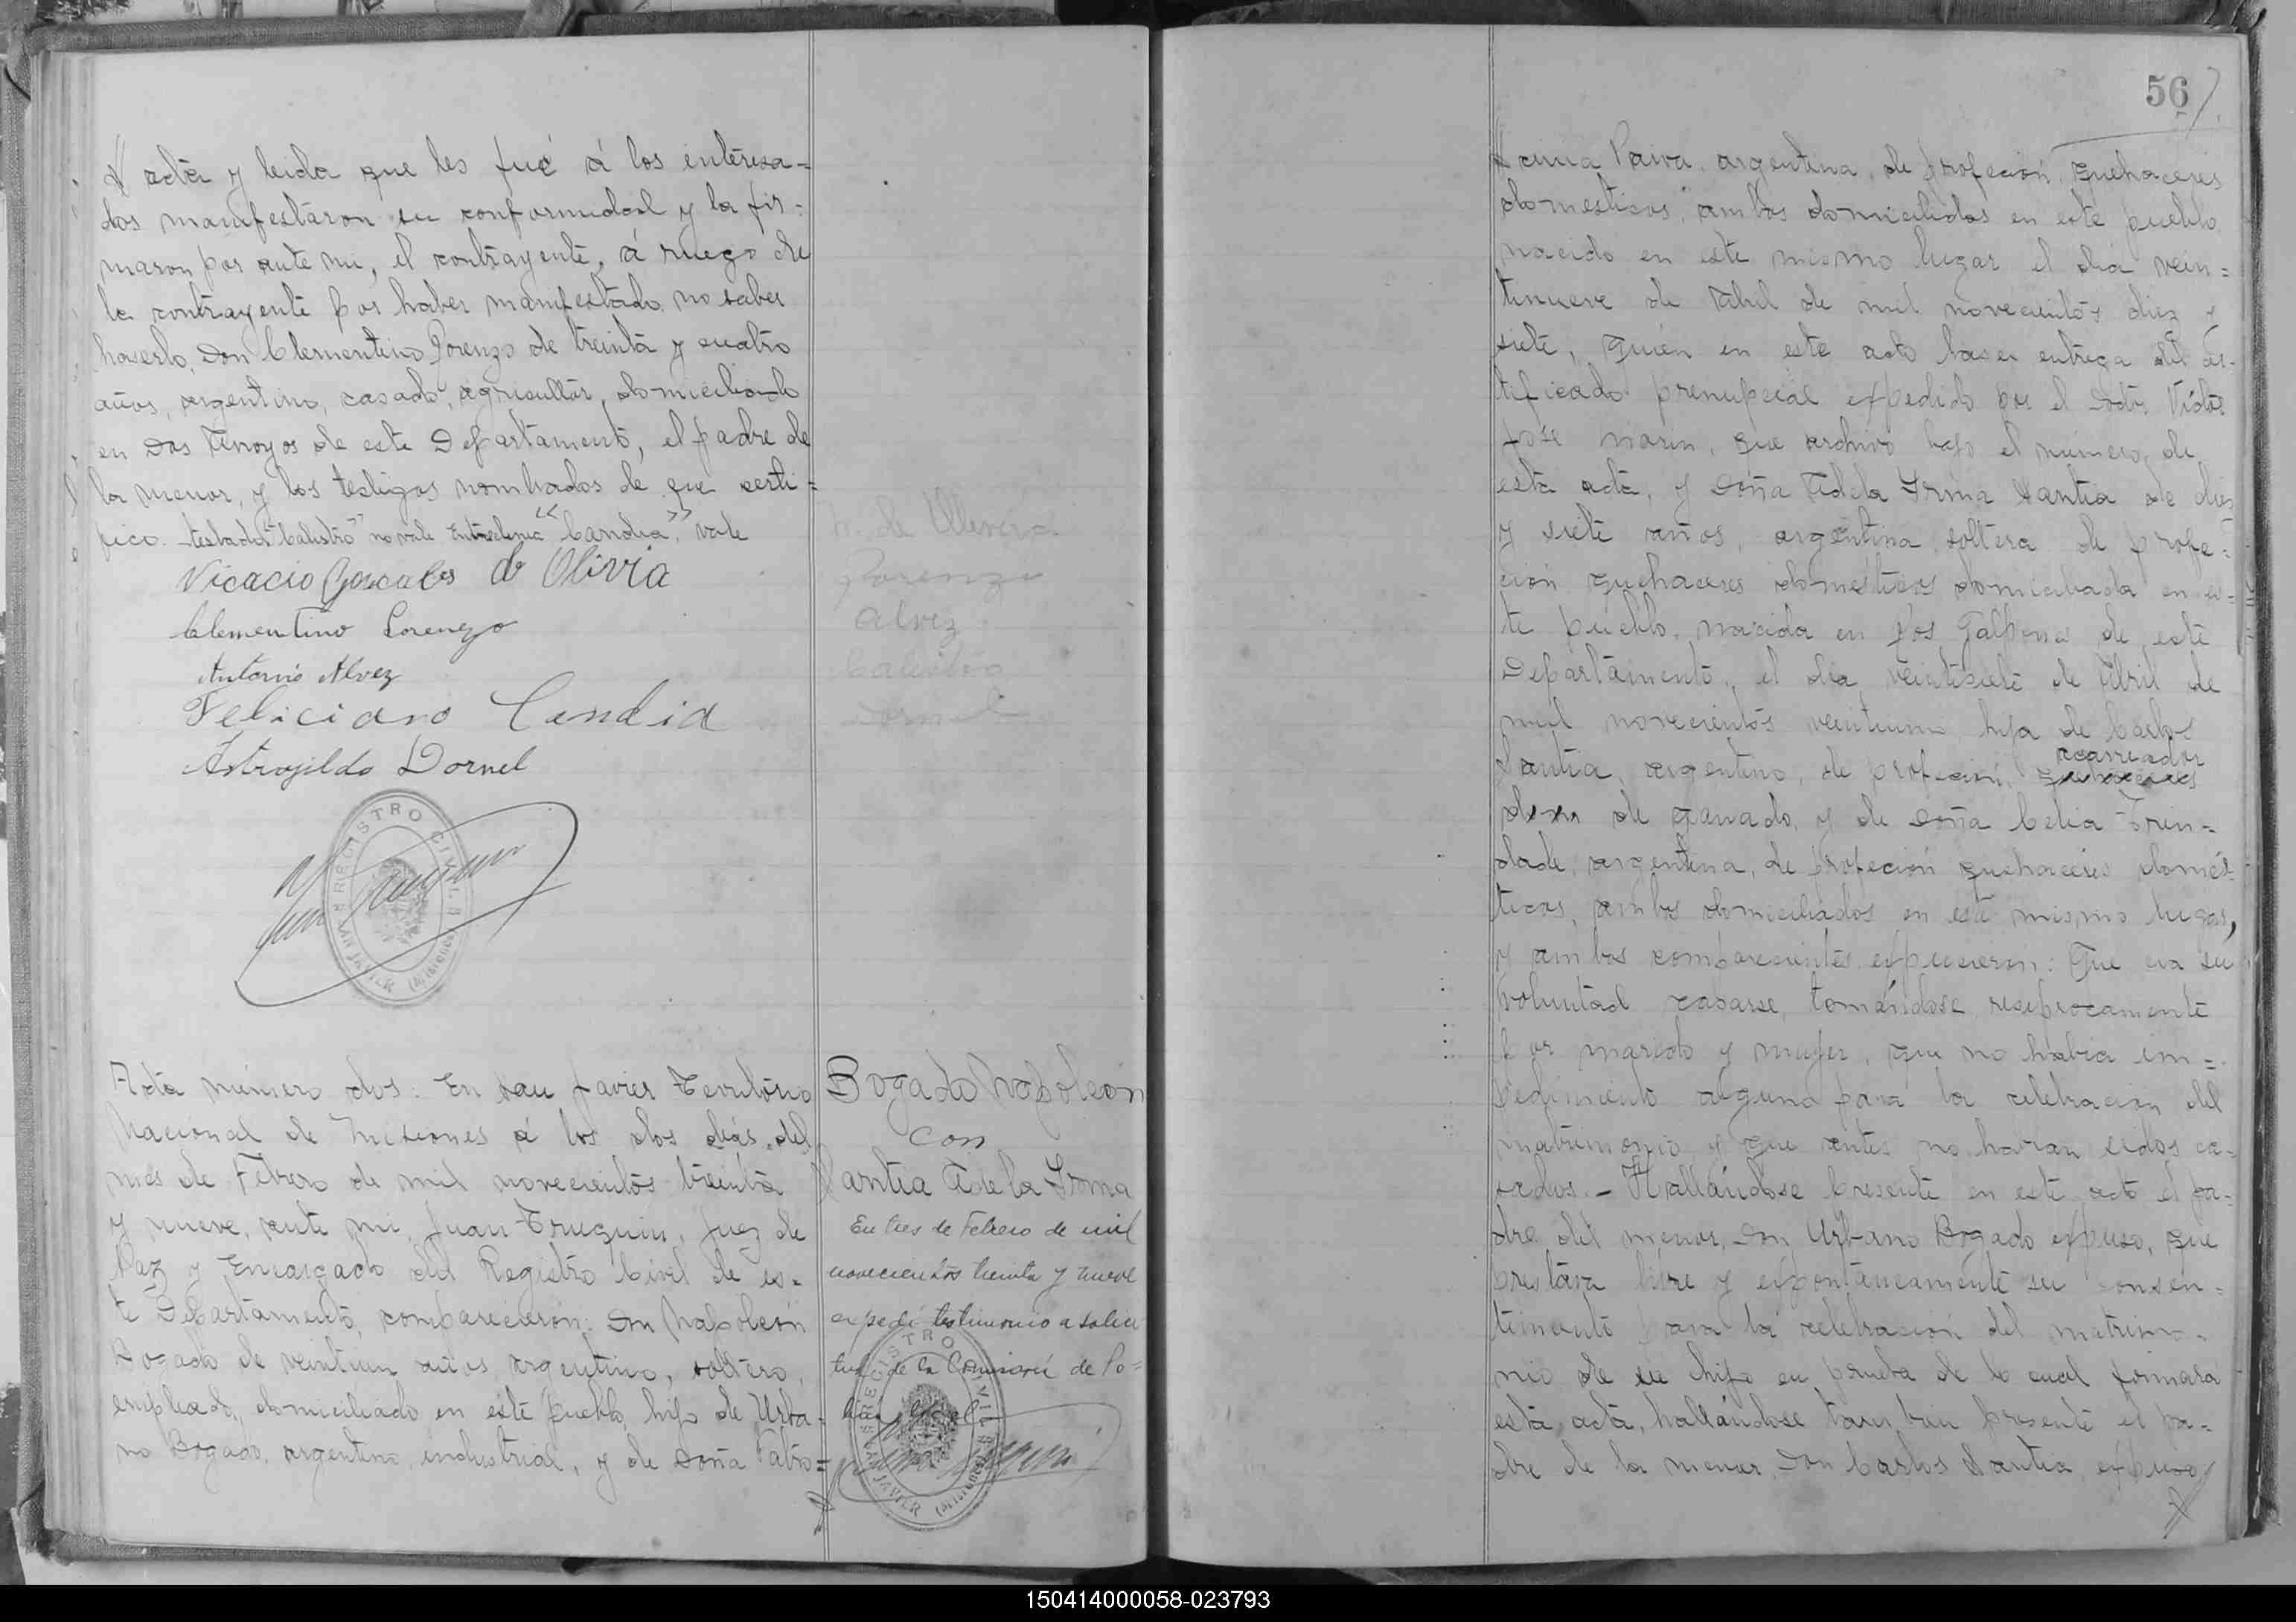 acta y leida que les fué á los interesa=
dos manifestaron su conformidad y la fir=
maron por ante mi, el contrayente, á ruego de
la contrayente por haber manifestado no saber
haserlo, Don Clementino Lorenzo de treinta y cuatro
años, argentino, casado, agricultor, domiciliado
en Dos Arroyos de este Departamento, el padre de
la menor, y los testigos nombrados de que certi=
fico. testado "Calistro" no vale Entrelinea "Candia", Vale
Nicacio Goncales de Olivia
Clementino Lorenzo
Antonio Alvez
Feliciano Candia
Astrogildo Dornel
REGISTRO CIVIL
SAN JAVIER (Misiones)
de Oliveira
Lorenzo
Alvez
Calistro
Dornel
Acta número dos: En San Javier Territorio
Nacional de Misiones á los dos dias del
mes de Febrero de mil novecientos treinta
y nueve, ante mi, Juan Truquin, Juez de
Paz y Encargado del Registro Civil de es=
te Departamento, comparecieron: Don Napoleón
Bogado de veintiun años, argentino, soltero,
empleado, domiciliado en este pueblo, hijo de Urba=
no Bogado, argentino, industrial, y de Doña Patro=
Bogado Napoleón
con
Santia Adela Irma
En tres de Febrero de mil
novecientos treinta y nueve
expedí testimonio a solici
tud de la Comisaría de Po=
REGISTRO CIVIL
SAN JAVIER (Misiones)
56
cinia Paiva, argentina, de profeción quehaceres
domesticos, ambos domiciliados en este pueblo,
nacido en este mismo lugar el dia vein=
tinueve de Abril de mil novecientos diez y
siete, quién en este acto hase entrega del cer-
tificado prenupcial expedido por el Doctor Victor
José Marin, que archivo bajo el número de
esta acta, y Doña Adela Irma Santia de diez
y siete años, argentina, soltera de profe=
cion quehaceres domésticos domiciliada en es=
te pueblo, nacida en Tres Galpones de este
Departamento, el dia veintisiete de Abril de
mil novecientos veintiuno, hija de Carlos
Santia, argentino, de profecion, acarreador
de ganado, y de Doña Celia Trin=
dade, argentina, de profecion quehaceres domés=
ticos, ambos domiciliados en este mismo lugar,
y ambos comparecientes expucieron: Que era su
voluntad casarse, tomándose resiprocamente
por marido y mujer, que no habia im=
pedimento alguno para la celebracion del
matrimonio y que antes no havian sidos ca=
sados. - Hallándose presente en este acto el pa-
dre del menor, Don Urbano Bogado expuso, que
prestava libre y expontáneamente su consen=
timiento para la celebracion del matrimo=
nio de su hijo en prueba de lo cual firmará
esta acta, hallándose tambien presente el pa-
dre de la menor, Don Carlos Santia, expuso,
150414000058-023793